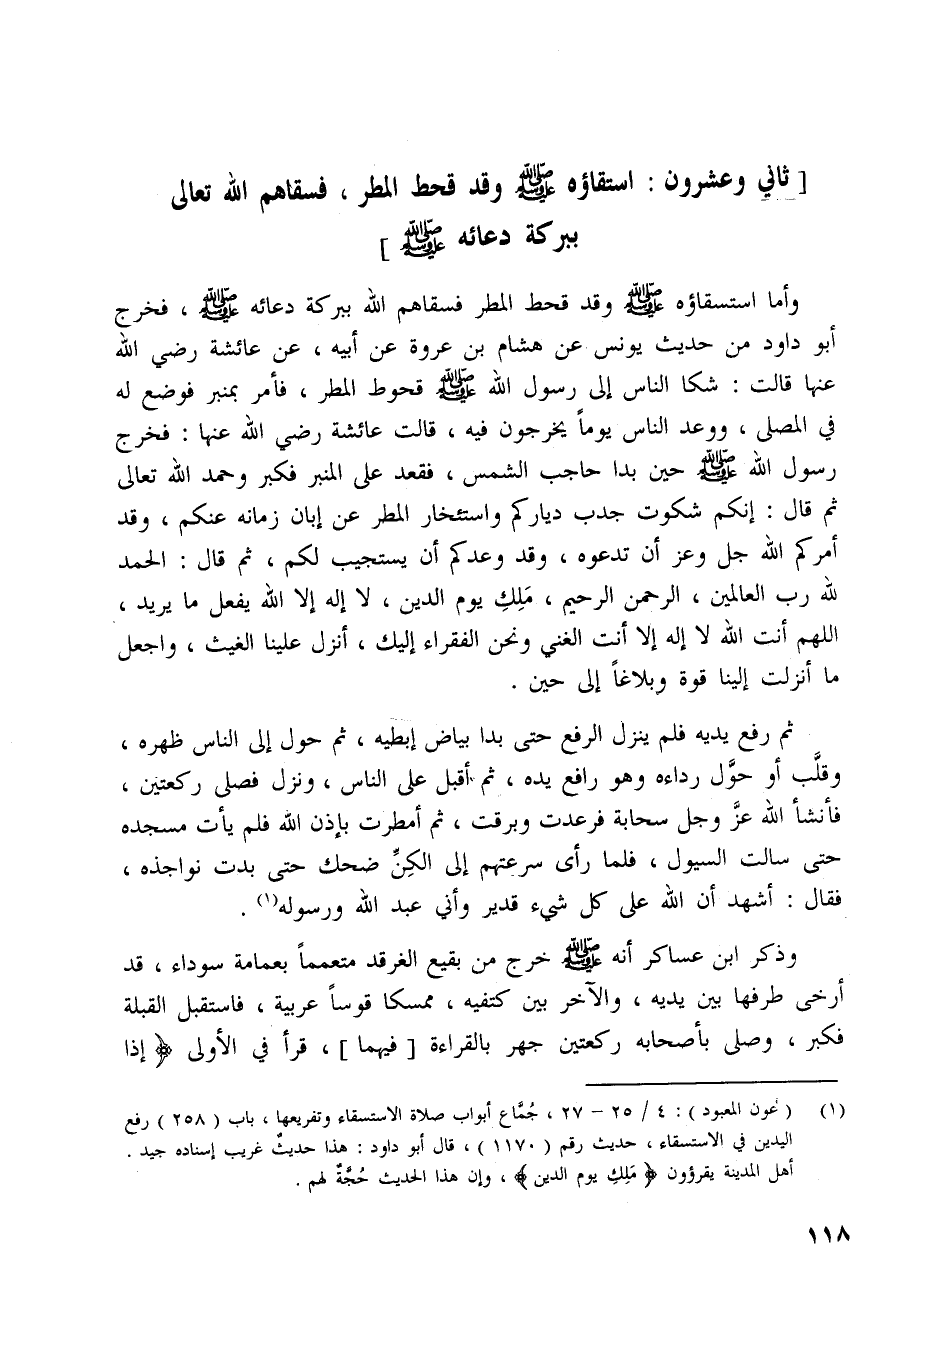 [ ثاني وعشرون : استقاؤه ﷺ وقد قحط المطر ، فسقاهم الله تعالى
ببركة دعائه ﷺ ]
وأما استسقاؤه ﷺ وقد قحط المطر فسقاهم الله ببركة دعائه ﷺ ، فخرج
أبو داود من حديث يونس عن هشام بن عروة عن أبيه ، عن عائشة رضي الله
عنها قالت : شكا الناس إلى رسول الله ﷺ قحوط المطر ، فأمر بمنبر فوضع له
في المصلى ، ووعد الناس يوماً يخرجون فيه ، قالت عائشة رضي الله عنها : فخرج
رسول الله ﷺ حين بدا حاجب الشمس ، فقعد على المنبر فكبر وحمد الله تعالى
ثم قال : إنكم شكوت جدب دياركم واستئخار المطر عن إبان زمانه عنكم ، وقد
أمركم الله جل وعز أن تدعوه ، وقد وعدكم أن يستجيب لكم ، ثم قال : الحمد
لله رب العالمين ، الرحمن الرحيم ، مَلِكِ يوم الدين ، لا إله إلا الله يفعل ما يريد ،
اللهم أنت الله لا إله إلا أنت الغني ونحن الفقراء إليك ، أنزل علينا الغيث ، واجعل
ما أنزلت إلينا قوة وبلاغاً إلى حين .
ثم رفع يديه فلم ينزل الرفع حتى بدا بياض إبطيه ، ثم حول إلى الناس ظهره ،
وقلَّب أو حوَّل رداءه وهو رافع يده ، ثم أقبل على الناس ، ونزل فصلى ركعتين ،
فأنشأ الله عزَّ وجل سحابة فرعدت وبرقت ، ثم أمطرت بإذن الله فلم يأت مسجده
حتى سالت السيول ، فلما رأى سرعتهم إلى الكِنِّ ضحك حتى بدت نواجذه ،
فقال : أشهد أن الله على كل شيء قدير وأني عبد الله ورسوله(١) .
وذكر ابن عساكر أنه ﷺ خرج من بقيع الغرقد متعمماً بعمامة سوداء ، قد
أرخى طرفها بين يديه ، والآخر بين كتفيه ، ممسكا قوساً عربية ، فاستقبل القبلة
فكبر ، وصلى بأصحابه ركعتين جهر بالقراءة [ فيهما ] ، قرأ في الأولى ﴿ إذا
(١) ( عون المعبود ) : ٤ / ٢٥ – ٢٧ ، جُمَّاع أبواب صلاة الاستسقاء وتفريعها ، باب ( ٢٥٨ ) رفع
اليدين في الاستسقاء ، حديث رقم ( ١١٧٠ ) ، قال أبو داود : هذا حديثٌ غريب إسناده جيد .
أهل المدينة يقرؤون ﴿ مَلِكِ يوم الدين ﴾ ، وإن هذا الحديث حُجَّةٌ لهم .
١١٨